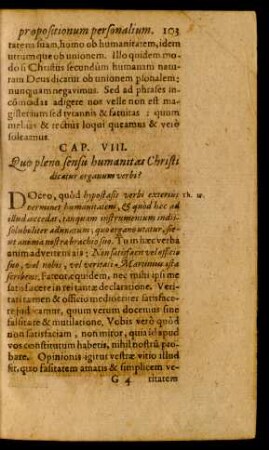 propositionum personalium. 103
tatem suam, homo ob humanitatem, idem
utrumque ob unionem. Illo quidem mo-
do si Christus secundùm humanam natu-
ram Deus dicatur ob unionem psonalem;
nunquam negavimus. Sed ad phrases in-
cōmodas adigere nos velle non est ma-
gisterium sed tyrannis & fatuitas: quum
meliùs & rectiùs loqui queamus & verò
soleamus.
CAP. VIII.
Quo pleno sensu humanitas Christi
dicatur organum verbi?
DOceo, quòd hypostasis verbi exterius
terminet humanitatem, & quòd hæc ad
illud accedat, tanquam instrumentum indis-
solubiliter adunatum, quo organo utatur, sic-
ut anima nostra brachio suo. Tu in hæc verba
animadvertens ais: Non satisfacit vel officio
suo, vel nobis, vel veritati. Martinius ista
scribens. Fateor equidem, nec mihi ipsi me
satisfacere in recitandæ declaratione. Veri-
tati tamen & officio mediocriter satisface-
re judicamur, quum verum docemus sine
falsitate & mutilatione. Vobis verò quòd
non satisfaciam, non miror, quia id apud
vos constitutum habetis, nihil nostrûm pro-
bare. Opinionis igitur vestræ vitio illud
fit, quo falsitatem amatis & simplicem ve-
G 4 ritatem